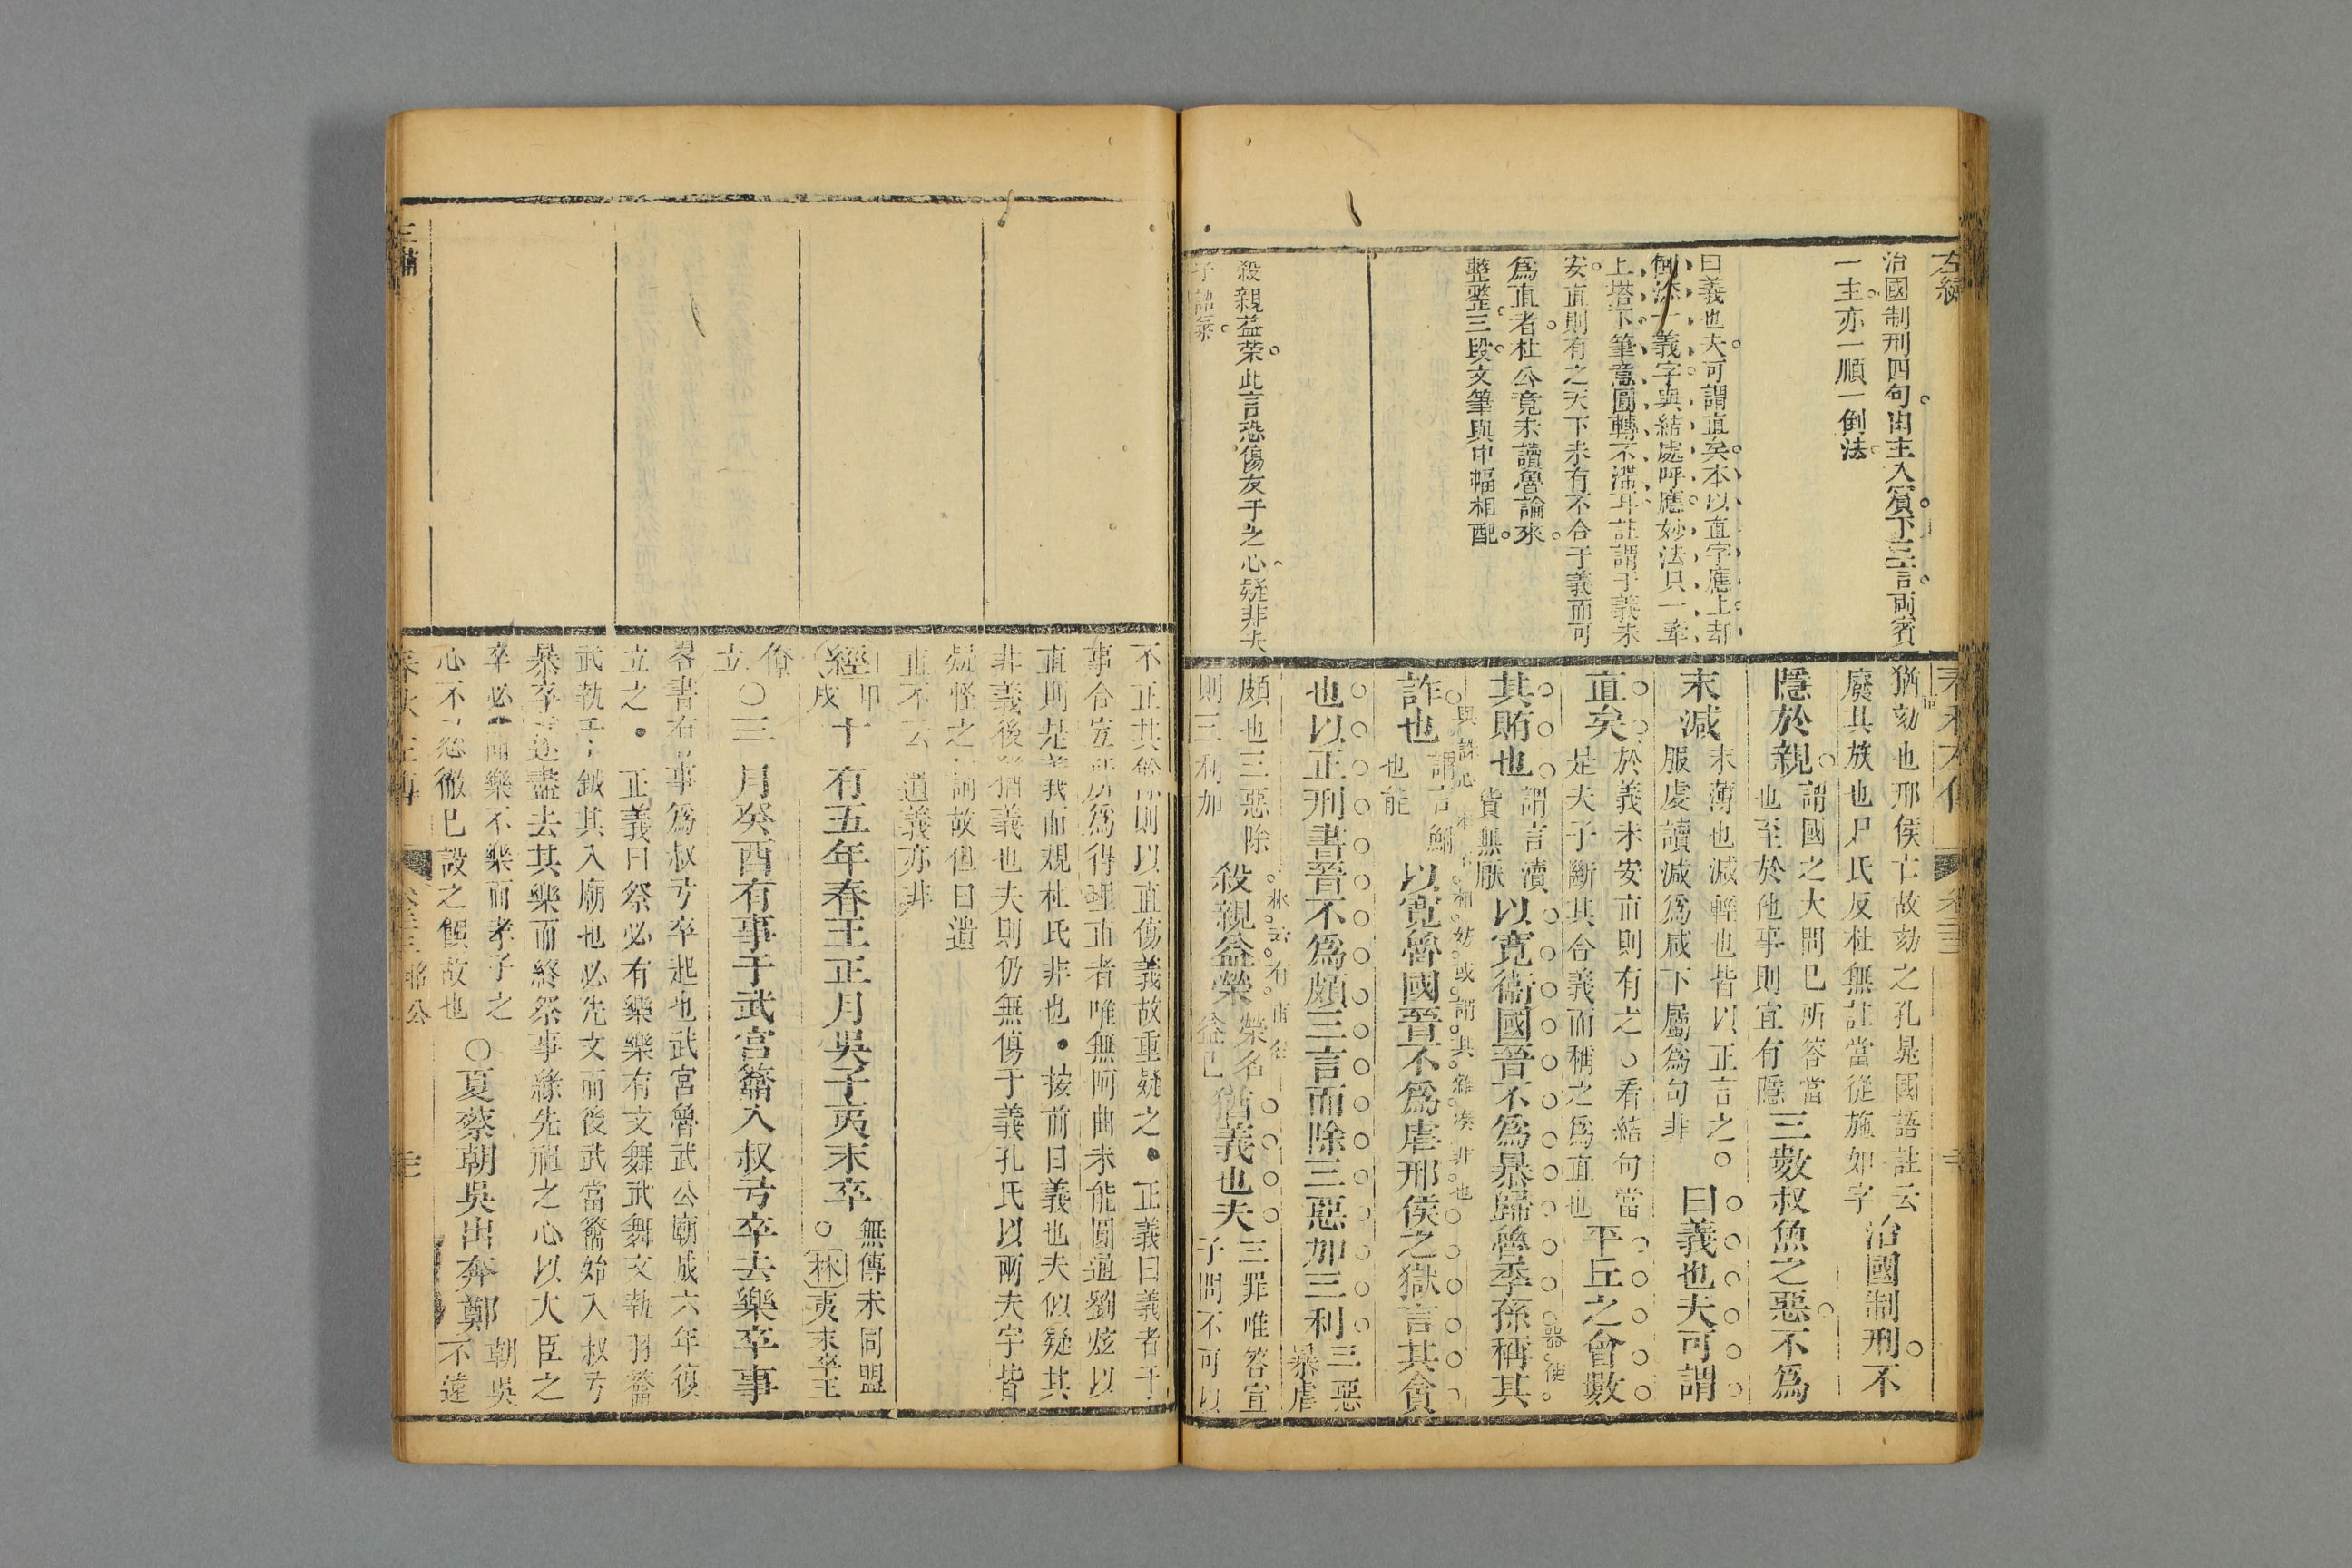 左繡
治國制刑四句由主入賓下三言兩賓
一主亦一順一倒法
曰義也夫可謂直矣本以直字應上却
倒添一義字與結處呼應妙法只一牽
上搭下筆意圓轉不滯耳註謂于義未
安直則有之天下未有不合于義而可
爲直者杜公竟未讀魯論來
整整三段文筆與中幅相配
殺親益荣此言恐傷友于之心疑非夫
子語氣
春秋左傳
猶劾也邢侯亡故劾之孔晁國語註云
廢其族也尸氏反杜無註當從施如字
治國制刑不
隱於親
謂國之大問巳所答當
也至於他事則宜有隱
三數叔魚之惡不爲
末減
末薄也減輕也皆以正言之○
服虔讀減爲咸下屬爲句非
曰義也夫可謂
直矣
於義未安直則有之○看結句當
是夫子斷其合義而稱之爲直也
平丘之會數
其賄也
謂言瀆
貨無厭
以寛衞國晉不爲暴歸魯季孫稱其
詐也
謂言鮒
也能
以寛魯國晉不爲虐邢侯之獄言其貪
也以正刑書晉不爲頗三言而除三惡加三利
三惡
暴虐
頗也三惡除
則三利加
殺親益榮
榮名
益己
猶義也夫
三罪唯答宣
子問不可以
不正其餘則以直傷義故重疑之●正義曰義者于
事合宜所爲得理直者唯無阿曲未能圓通劉炫以
直則是義而規杜氏非也●按前曰義也夫似疑其
非義後曰猶義也夫則仍無傷于義孔氏以兩夫字皆
疑怪之詞故但曰遺
直不云遺義亦非
經
甲
戌
十有五年春王正月吳子夷末卒
無傳未同盟
○林夷末卒王
僚
立
○三月癸酉有事于武宮籥入叔弓卒去樂卒事
畧書有事爲叔弓卒起也武宮魯武公廟成六年復
立之●正義曰祭必有樂樂有文舞武舞文執羽籥
武執干鏚其入廟也必先文而後武當籥始入叔弓
暴卒遂盡去其樂而終祭事緣先祖之心以大臣之
卒必聞樂不樂而孝子之
心不忍徹巳設之饌故也
○夏蔡朝吳出奔鄭
朝吳
不遠
春秋左傳
昭公